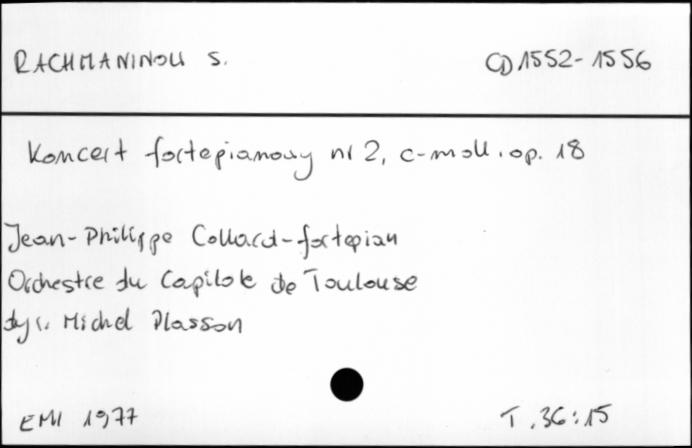 RACHMANINOW S. CD 1552-1556
Koncert fortepianowy nr 2, c-moll, op. 18
Jean-Philippe Collard-fortepian
Orchestre du Capitole de Toulouse
dyr. Michel Plasson
EMI 1977 T. 36:15